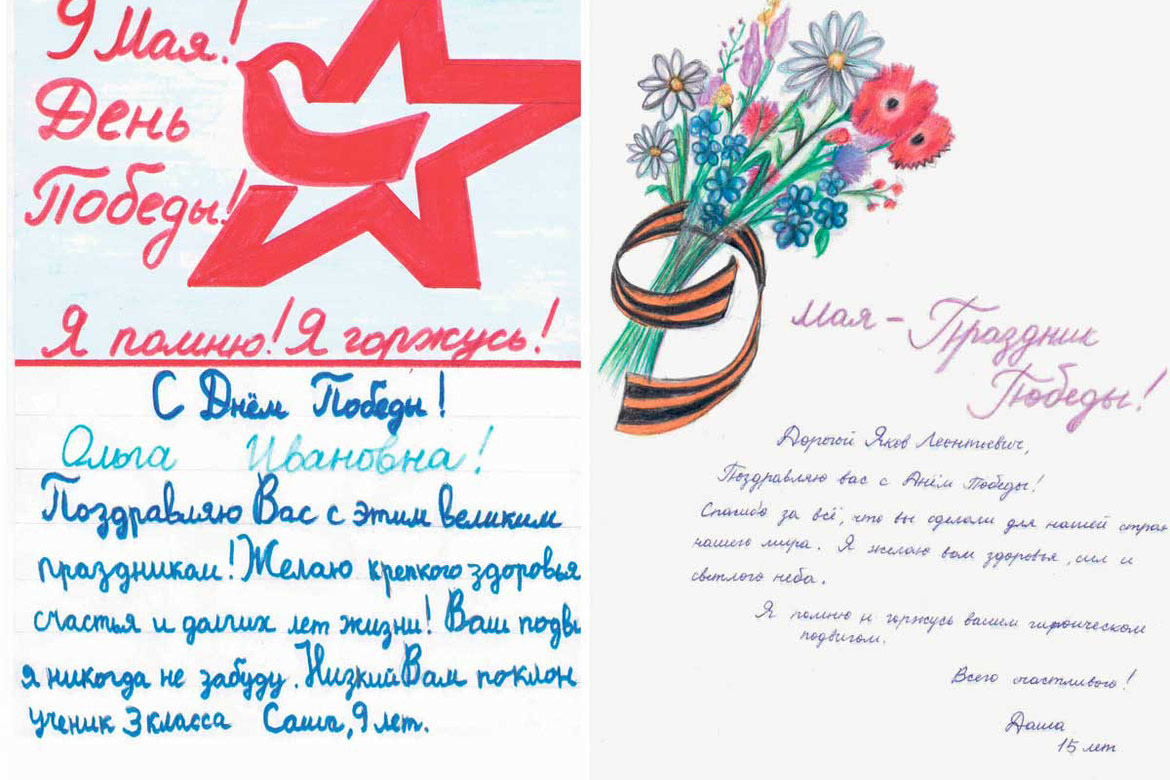 9 Мая!
День
Победы!
Я помню! Я горжусь!
С Днём Победы!
Ольга Ивановна!
Поздравляю Вас с этим великим
праздникам! Желаю крепкого здоровья
счастья и долгих лет жизни! Ваш подви
я никогда не забуду. Низкий Вам поклон
ученик 3 класса Саша, 9 лет.
Мая – Праздник
Победы!
Дорогой Яков Леонтиевич,
Поздравляю вас с Днём Победы!
Спасибо за всё, что вы сделали для нашей стран
нашего мира. Я желаю вам здоровья, сил и
светлого неба.
Я помню и горжусь вашим героическом
подвигом.
Всего счастливого!
Даша
15 лет